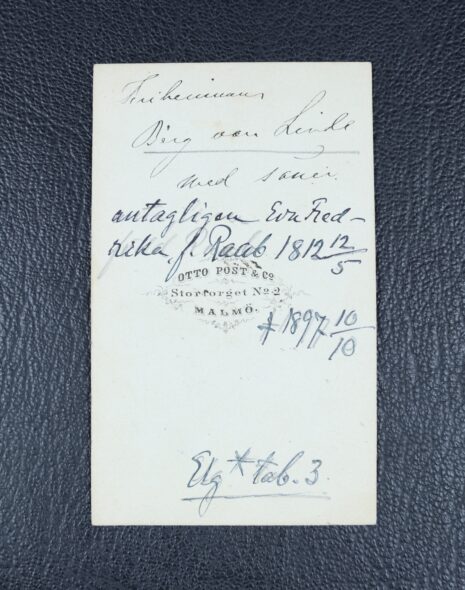 Friherinnan
Berg von Linde
med söner.
antagligen Eva Fred-
rika f. Raab 1812 12/5
OTTO POST & Co
Stortorget No 2
MALMÖ.
† 1897 10/10
Elg * tab. 3.